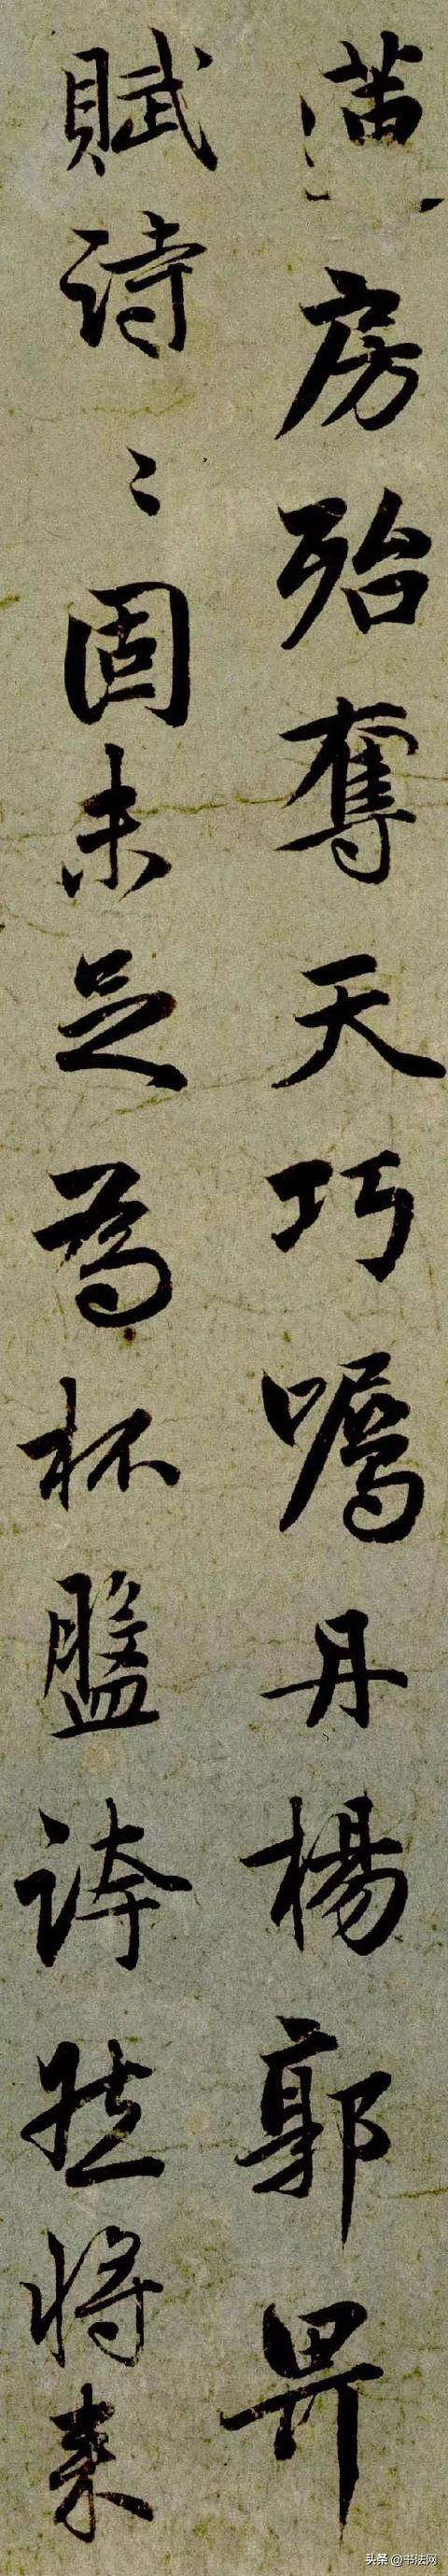 房殆奪天巧囑丹楊郭畀
賦詩〻固未足為杯盤誇
將来
头条 @书法网